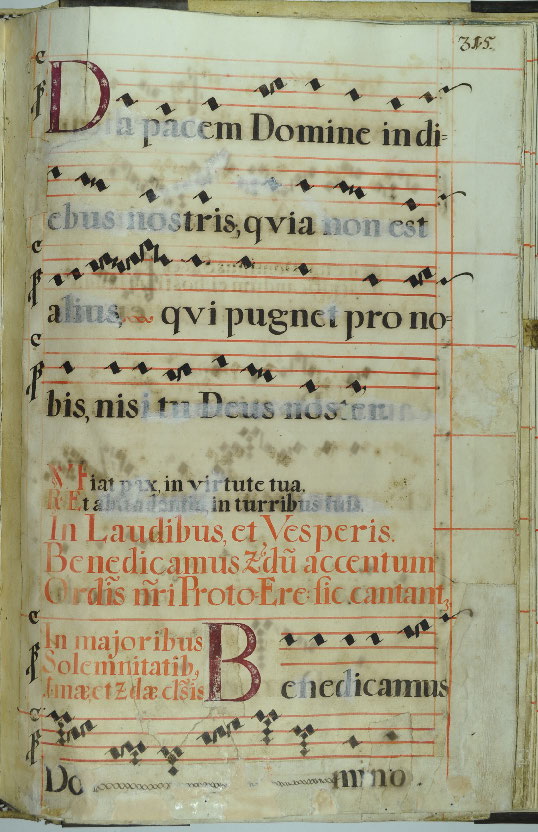 315.
Da pacem Domine in di=
ebus nostris, qvia non est
alius, qvi pugnet pro no=
bis, nisi tu Deus noster.
V. Fiat pax, in virtute tua.
R. Et abundentia, in turribus tuis.
In Laudibus, et Vesperis.
Benedicamus, dū accentum
Ordīs n̄ri Proto-Ere: sic cantant,
In majoribus
Solemnitatib,
Benedicamus
Do mino.